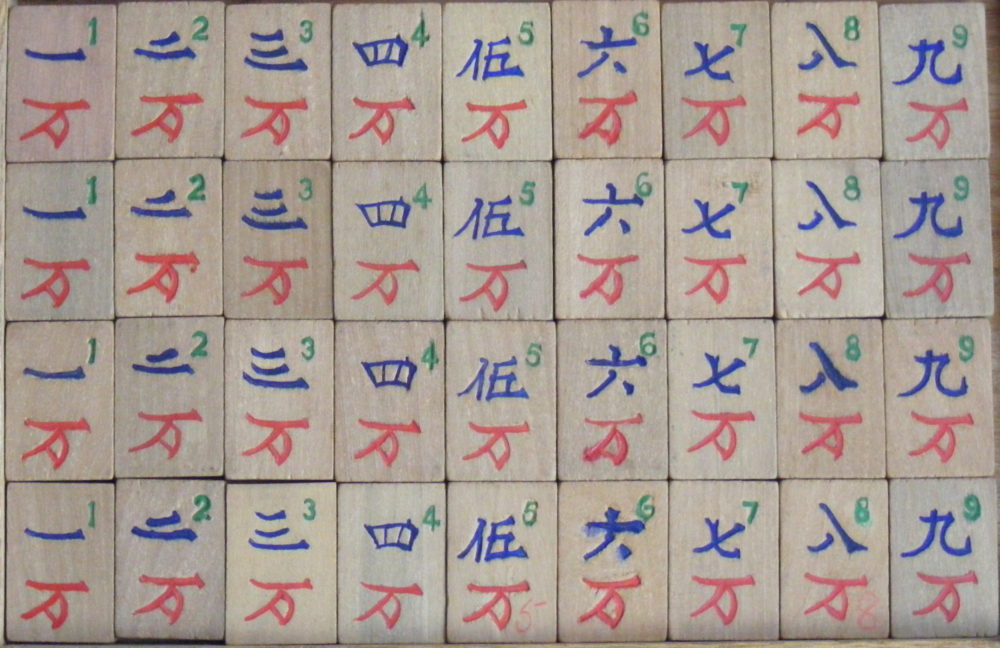 一1 二2 三3 四4 伍5 六6 七7 八8 九9
万 万 万 万 万 万 万 万 万
一1 二2 三3 四4 伍5 六6 七7 八8 九9
万 万 万 万 万 万 万 万 万
一1 二2 三3 四4 伍5 六6 七7 八8 九9
万 万 万 万 万 万 万 万 万
一1 二2 三3 四4 伍5 六6 七7 八8 九9
万 万 万 万 万5 万 万 万8 万